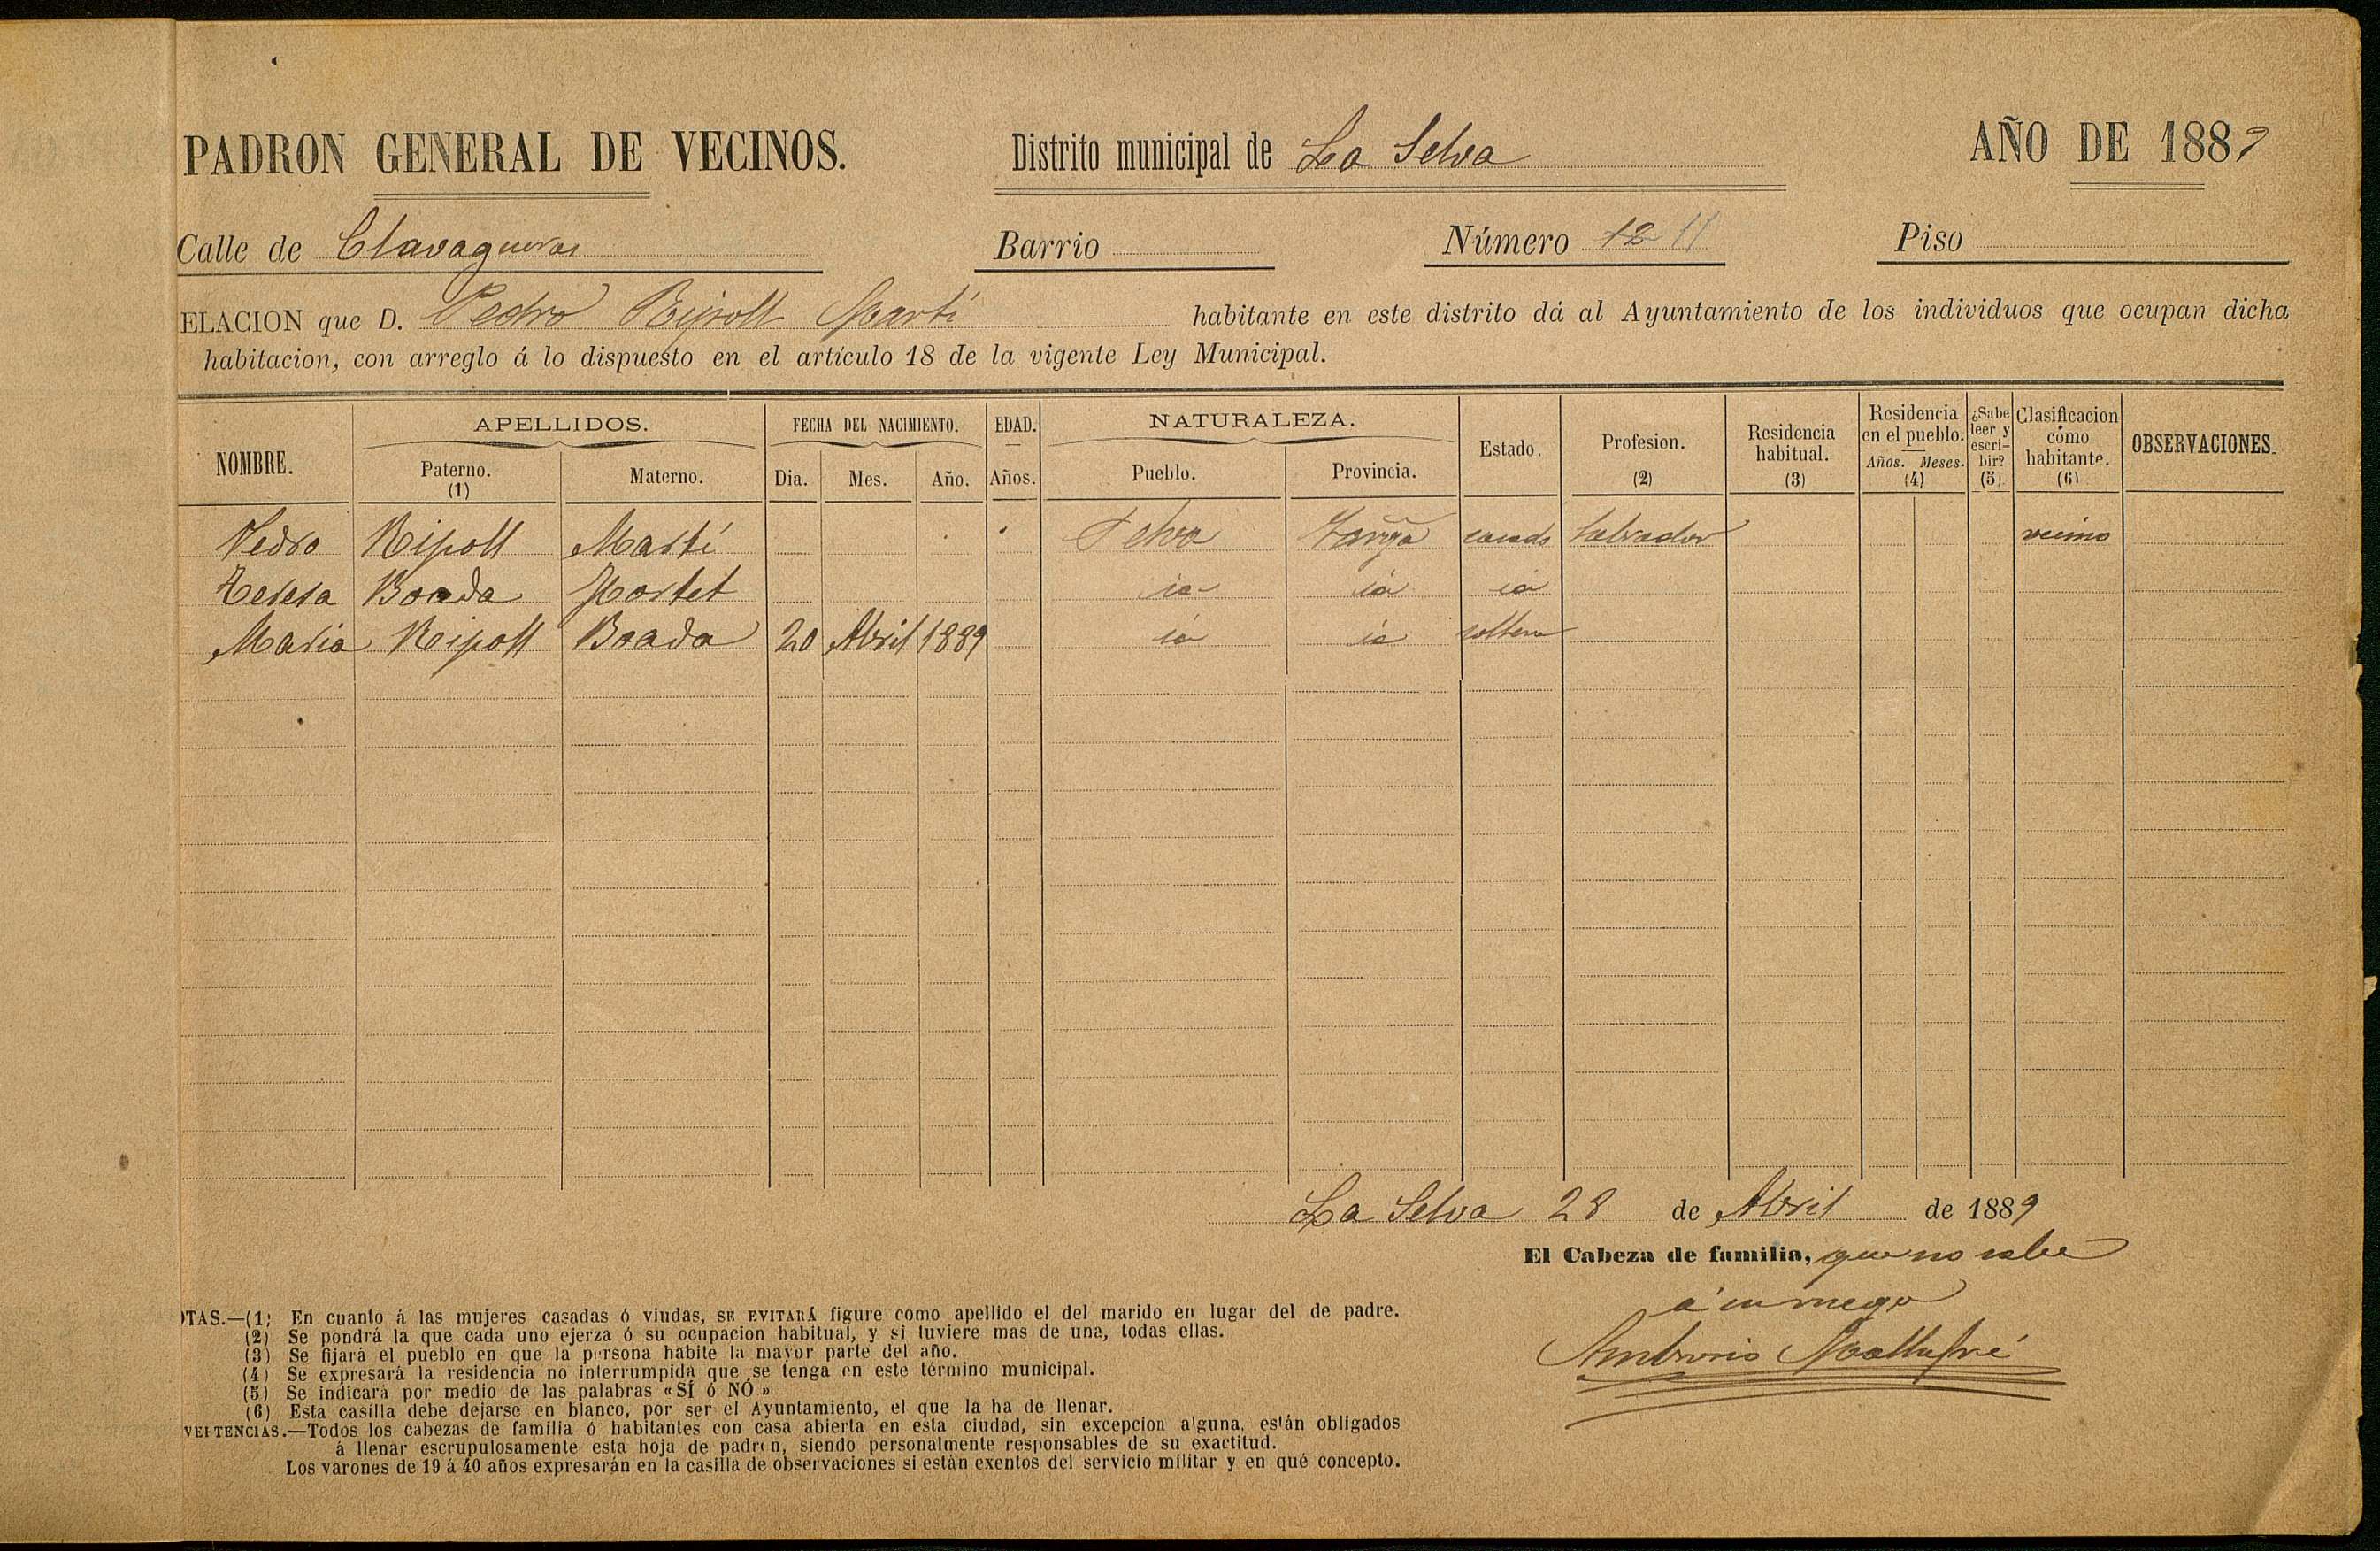 PADRON GENERAL DE VECINOS. Distrito municipal de La Selva AÑO DE 1889
Calle de Clavagueras Barrio Número 12 11 Piso
ELACION que D. Pedro Ripoll Martí habitante en este distrito dá al Ayuntamiento de los individuos que ocupan dicha
habitacion, con arreglo á lo dispuesto en el artículo 18 de la vigente Ley Municipal.
NOMBRE. APELLIDOS. Paterno. (1) Materno. FECHA DEL NACIMIENTO. Dia. Mes. Año. EDAD. Años. NATURALEZA. Pueblo. Provincia. Estado. Profesion. (2) Residencia habitual. (3) Residencia en el pueblo. Años. Meses. (4) ¿Sabe leer y escribir? (5) Clasificacion cómo habitante. (6) OBSERVACIONES.
Pedro Ripoll Martí Selva casado labrador vecino
Teresa Boada id id id
Maria Ripoll Boada 20 Abril 1889 id id soltera
La Selva 28 de Abril de 1889
El Cabeza de familia, que no sabe
á su ruego
Ambrosio Mallafré
OTAS.—(1) En cuanto á las mujeres casadas ó viudas, SE EVITARÁ figure como apellido el del marido en lugar del de padre.
(2) Se pondrá la que cada uno ejerza ó su ocupacion habitual, y si tuviere mas de una, todas ellas.
(3) Se fijará el pueblo en que la persona habite la mayor parte del año.
(4) Se expresará la residencia no interrumpida que se tenga en este término municipal.
(5) Se indicará por medio de las palabras «SÍ ó NÓ.»
(6) Esta casilla debe dejarse en blanco, por ser el Ayuntamiento, el que la ha de llenar.
VERTENCIAS.—Todos los cabezas de familia ó habitantes con casa abierta en esta ciudad, sin excepcion alguna, están obligados
á llenar escrupulosamente esta hoja de padron, siendo personalmente responsables de su exactitud.
Los varones de 19 á 40 años expresarán en la casilla de observaciones si están exentos del servicio militar y en qué concepto.